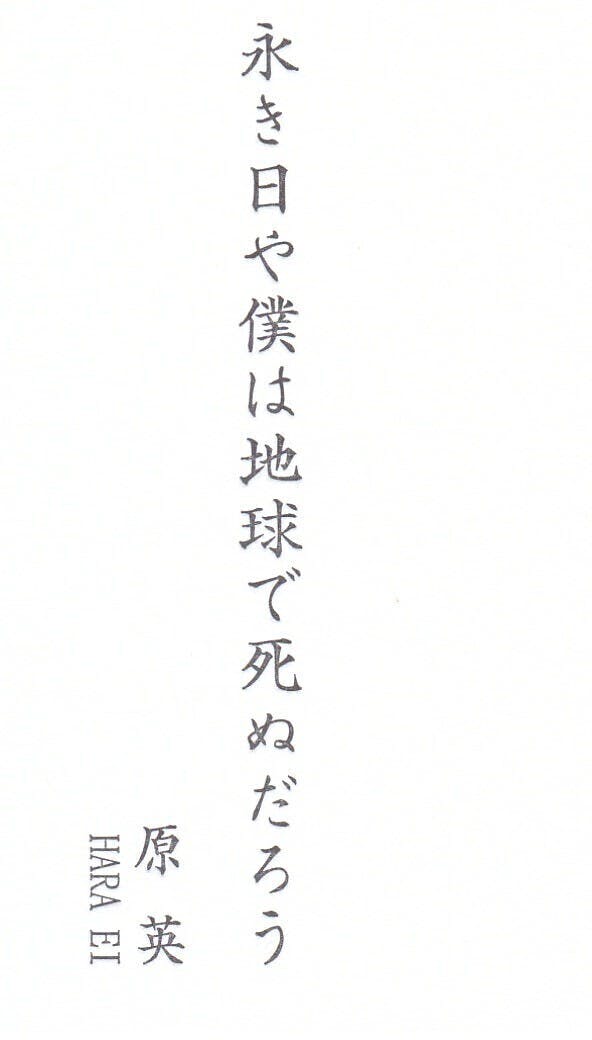 永き日や僕は地球で死ぬだろう
原 英
HARA EI